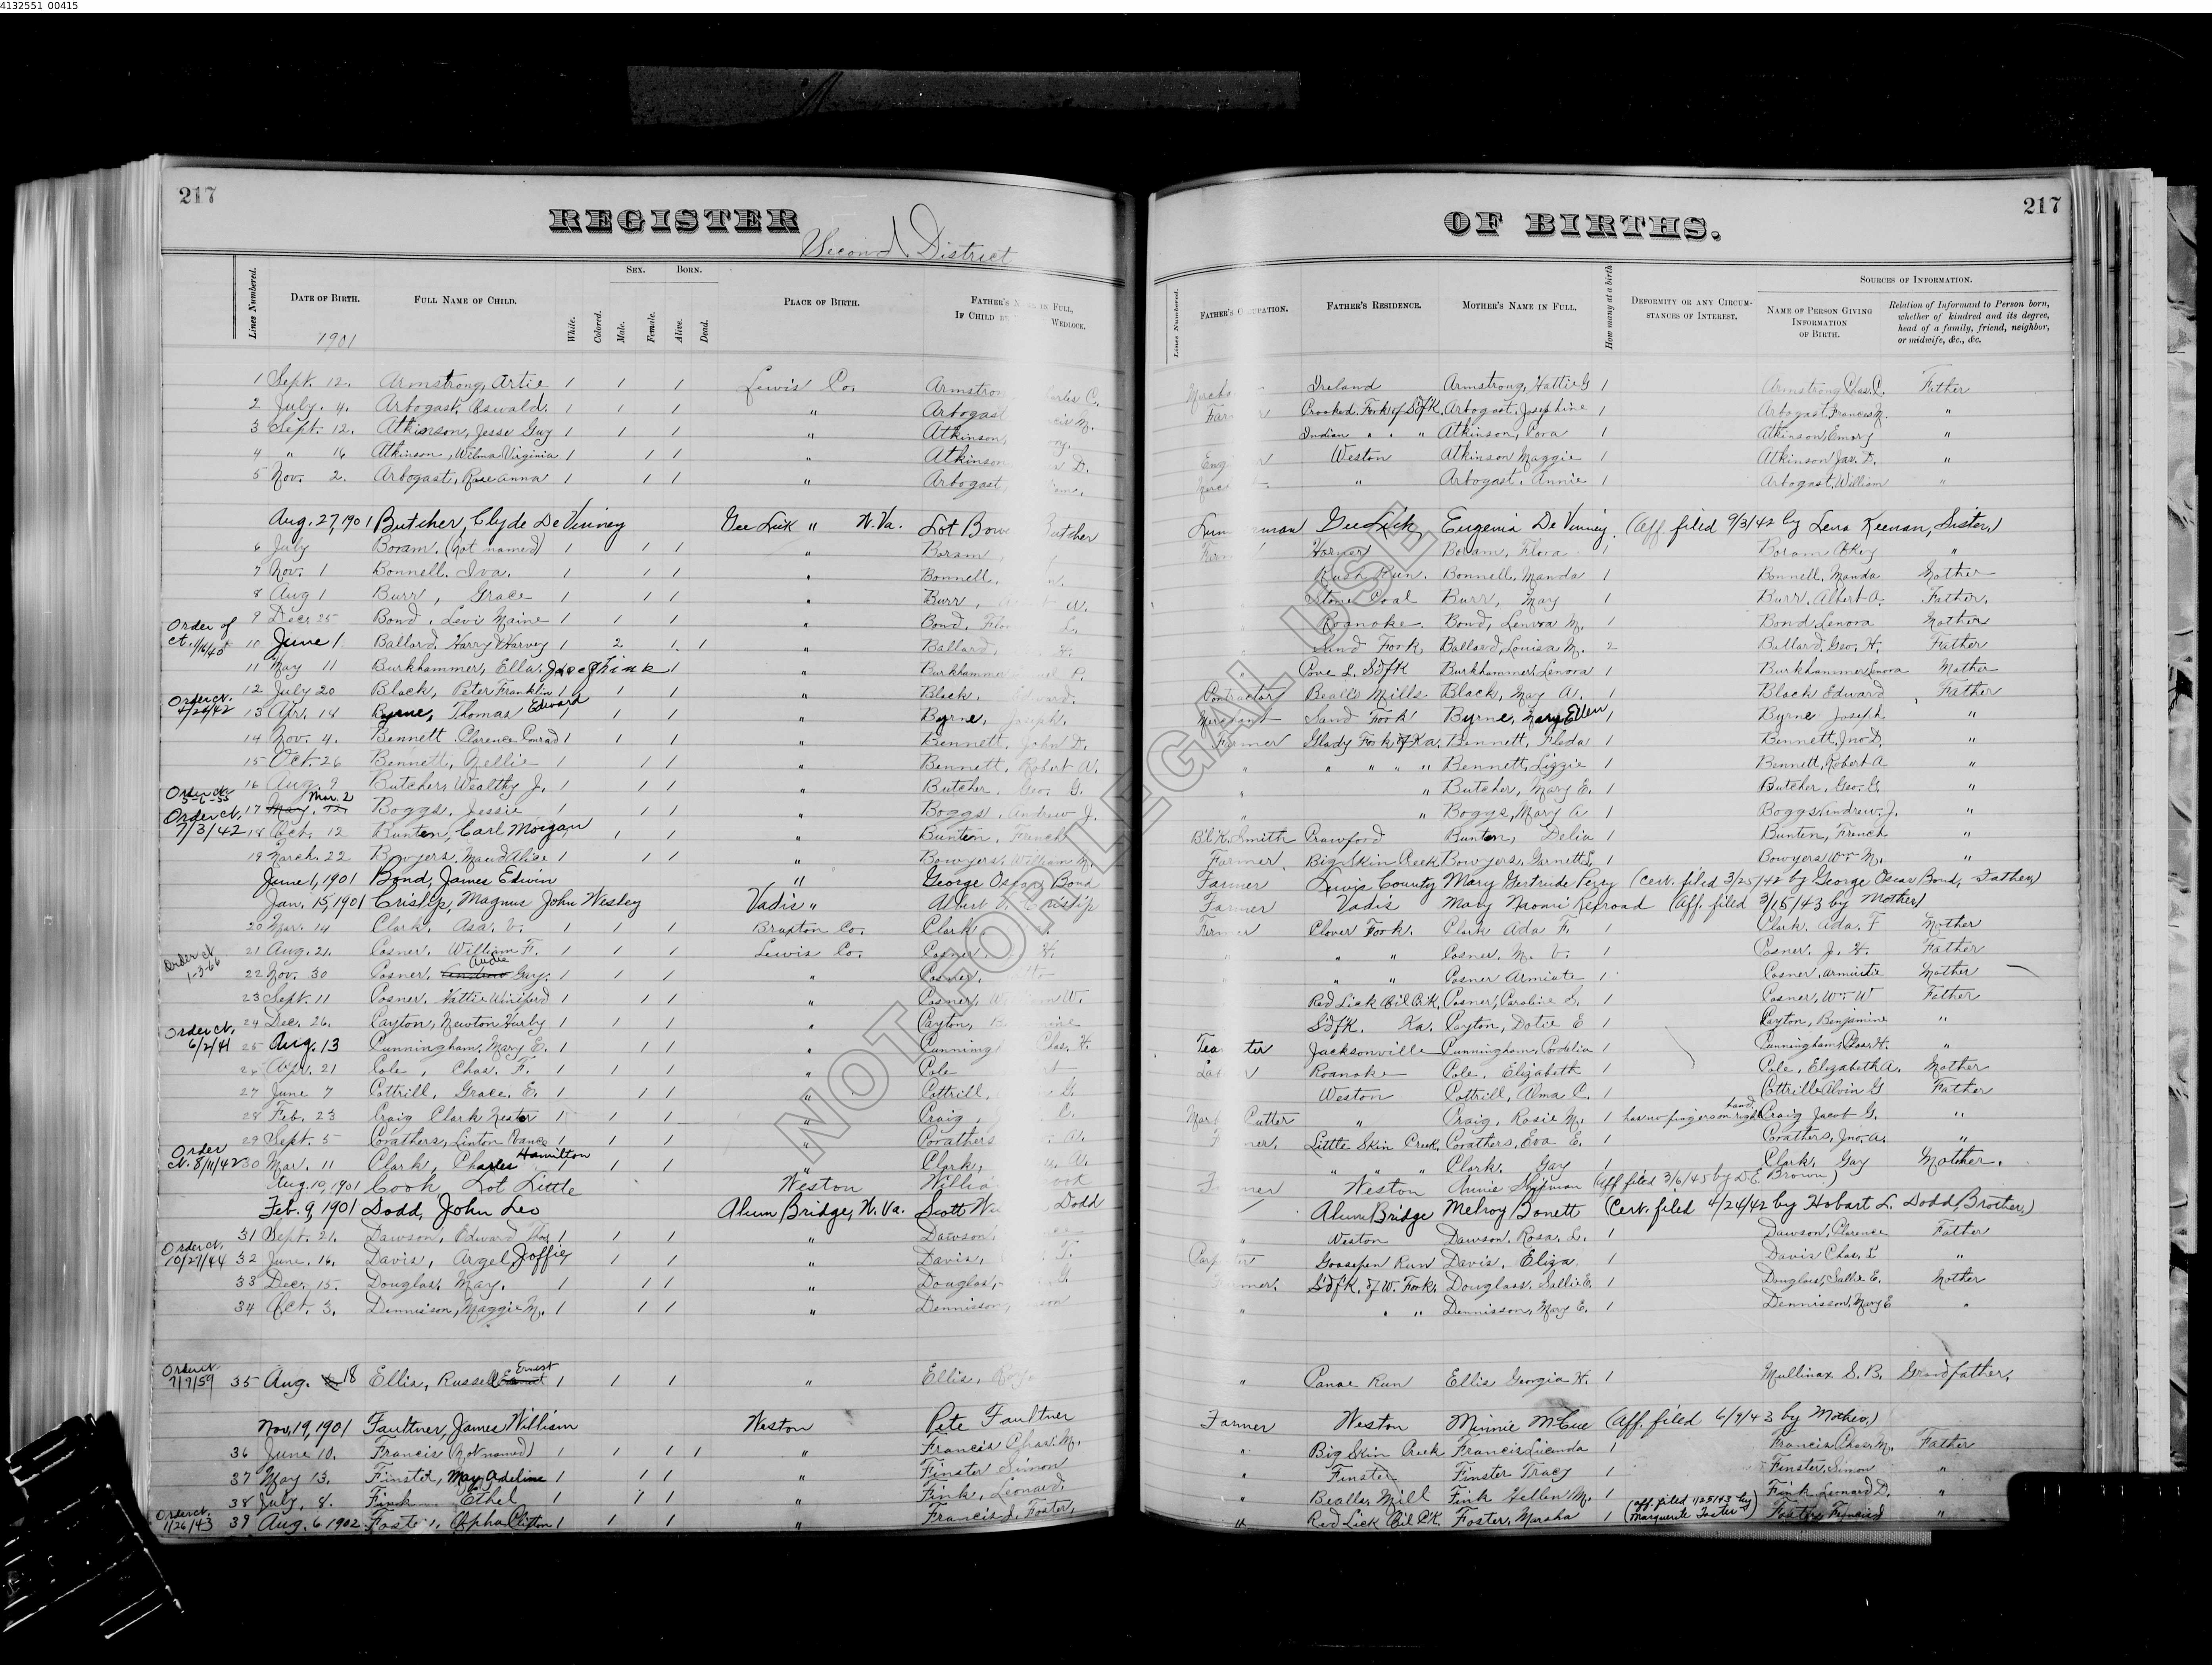 4132551_00415
217
REGISTER
Second District
Lines Numbered.
DATE OF BIRTH.
FULL NAME OF CHILD.
White.
Colored.
SEX.
Male.
Female.
BORN.
Alive.
Dead.
PLACE OF BIRTH.
FATHER'S IN FULL,
IF CHILD WEDLOCK.
1901
1 Sept. 12. Armstrong, Artie 1 1 1 Lewis Co. Armstron rles C.
2 July. 4. Arbogast, Oswald. 1 1 1 " Arbogast cis M.
3 Sept. 12. Atkinson, Jesse Guy 1 1 1 " Atkinson,
4 " 16 Atkinson, Wilma Virginia 1 1 1 " Atkinson D.
5 Nov. 2. Arbogast, Rose Anna 1 1 1 " Arbogast
Aug. 27, 1901 Butcher, Clyde De Vinney Gee Lick " W. Va. Lot Bowe Butcher
6 July Boram. (not named) 1 1 1 " Boram
7 Nov. 1 Bonnell. Iva. 1 1 1 " Bonnell.
8 Aug 1 Burr, Grace 1 1 1 " Burr, A.
9 Dec. 25 Bond, Levi Maine 1 1 1 " Bond, Flo L.
Order of ct. 1/16/40 10 June 1 Ballard, Harry Harvey 1 2 1 1 " Ballard, H.
11 May 11 Burkhammer, Ella Josephine 1 " Burkhammer P.
12 July 20 Black, Peter Franklin 1 1 1 " Black, Edward.
Order ct. 4/26/42 13 Apr. 18 Byrne, Thomas Edward 1 1 1 " Byrne, Joseph.
14 Nov. 4. Bennett Clarence Conrad 1 1 1 " Bennett, John D.
15 Oct. 26 Bennett, Nellie 1 1 1 " Bennett, Robert A.
16 Aug. 9 Butcher, Wealthy J. 1 1 1 " Butcher. Geo. G.
Order ct. 5-6-55 17 May Mar. 2 Boggs, Jessie 1 1 1 " Boggs, Andrew J.
Order ct. 7/3/42 18 Oct. 12 Bunten, Carl Morgan 1 1 " Bunten, French
19 March. 22 Bowyers. Maud Alice 1 1 1 " Bowyers, William M.
June 1, 1901 Bond, James Edwin " George Oscar Bond
Jan. 15, 1901 Crislip, Magnus John Wesley Vadis " Albert Crislip
20 Mar. 14 Clark, Asa. V. 1 1 1 Braxton Co. Clark
21 Aug. 21. Cosner. William F. 1 1 1 Lewis Co. Cosner. H.
Order ct 1-3-66 22 Nov. 30 Cosner. Audie Gay. 1 1 1 " Cosner,
23 Sept. 11 Cosner. Hattie Winiferd 1 1 1 " Cosner, W m W.
24 Dec. 26. Cayton, Newton Hurby 1 1 1 " Cayton,
Order ct, 6/2/41 25 Aug. 13 Cunningham, Mary E. 1 1 1 " Cunning Chas. H.
26 Apr. 21 Cole, Chas. F. 1 1 1 " Cole
27 June 7 Cottrill, Grace. E. 1 1 1 " Cottrill, G.
28 Feb. 23 Craig Clark Nester 1 1 1 " Craig
29 Sept. 5 Corathers, Linton Vance 1 1 1 " Corathers A.
Order Ct. 8/11/42 30 Mar. 11 Clark, Charles Hamilton 1 1 " Clark,
Aug. 10, 1901 Cook Lot Little Weston Willia Cook
Feb. 9, 1901 Dodd, John Leo Alum Bridge, W. Va. Scott Dodd
31 Sept. 21. Dawson, Edward Thos. 1 1 1 " Dawson
Order ct. 10/27/44 32 June. 16. Davis, Argel Joffie 1 1 " Davis,
33 Dec. 15. Douglas, May. 1 1 1 " Douglas, G.
34 Oct. 3. Dennisson, Maggie M. 1 1 1 " Dennisson,
Order ct. 7/7/59 35 Aug. 18 Ellis, Russell Ernest 1 1 1 " Ellis,
Nov, 19, 1901 Faultner, James William Weston Pete Faultner
36 June 10. Francis (not named) 1 1 1 1 " Francis Chas. M.
37 May 13. Finster, May Adeline 1 1 1 " Finster Simon
38 July, 8. Fink Ethel 1 1 1 " Fink, Leonard.
Order ct. 1/26/43 39 Aug. 6 1902. Foster, Alpha Clifton 1 1 1 " Francis J. Foster,
217
OF BIRTHS.
Lines Numbered.
FATHER'S OCCUPATION.
FATHER'S RESIDENCE.
MOTHER'S NAME IN FULL.
How many at a birth
DEFORMITY OR ANY CIRCUM-
STANCES OF INTEREST.
SOURCES OF INFORMATION.
NAME OF PERSON GIVING
INFORMATION
OF BIRTH.
Relation of Informant to Person born,
whether of kindred and its degree,
head of a family, friend, neighbor,
or midwife, &c., &c.
Ireland Armstrong, Hattie G 1 Armstrong Chas. C. Father
Crooked Fork of S.fK. Arbogast, Josephine 1 Arbogast, Francis M. "
Indian " " " Atkinson, Cora 1 Atkinson, Emory "
Eng Weston Atkinson Maggie 1 Atkinson Jas. D. "
" Arbogast. Annie 1 Arbogast, William "
man Gee Lick Eugenia De Vinney (Aff. filed 9/3/42 by Lena Keenan, Sister,)
Horner Boram, Flora 1 Boram Okey "
Rush Run. Bonnell, Manda 1 Bonnell, Manda Mother
Stone Coal Burr, May 1 Burr, Albert A. Father.
Roanoke Bond, Lenora M. 1 Bond Lenora Mother
Sand Fork, Ballard, Louisa M. 2 Ballard, Geo. H. Father
Cove L. SdfK Burkhammer, Lenora 1 Burkhammer Lenora Mother
Contractor Beall's Mills Black, May A. 1 Black Edward Father
Merchant Sand Fork Byrne, Mary Ellen 1 Byrne Joseph "
Farmer Glady Fork of Ka. Bennett, Fleda 1 Bennett, Jno. D. "
" " " " " Bennett, Lizzie 1 Bennett, Robert A "
" " Butcher, Mary E. 1 Butcher, Geo. G. "
" " Boggs, Mary A 1 Boggs Andrew. J. "
Bl'k. Smith Crawford Bunten, Delia 1 Bunten, French "
Farmer. Big Skin Creek Bowyers, Garnett L. 1 Bowyers Wm. M. "
Farmer Lewis County Mary Gertrude Perry (Cert. filed 3/25/42 by George Oscar Bond, Father,)
Farmer Vadis Mary Naomi Rexroad (Aff. filed 3/15/43 by Mother)
Farmer Clover Fork. Clark Ada F. 1 Clark. Ada. F Mother
" " " Cosner. M. V. 1 Cosner. J. H. Father
" " " Cosner Arminta 1 Cosner, Armintie Mother
Red Lick Oil C'K. Cosner, Caroline S. 1 Cosner, Wm. W Father
S'dfK. Ka. Cayton, Dotie E 1 Cayton, Benjamine "
Tea ter Jacksonville Cunningham, Cordelia 1 Cunningham, Chas. H. "
Roanoke Cole, Elizabeth 1 Cole, Elizabeth A. Mother
Weston Cottrill, Alma C. 1 Cottrill Alvin G Father
Cutter " Craig, Rosie M. 1 has no fingers on right hand Craig Jacob G. "
ner. Little Skin Creek. Corathers, Eva E. 1 Corathers, Jno. A. "
" " " Clark. Gay 1 Clark, Gay Mother.
Weston Annie Shipman (Aff filed 3/6/45 by D.E. Brown)
Alum Bridge Melroy Bonett (Cert. filed 4/24/42 by Hobart L. Dodd, Brother,)
" Weston Dawson, Rosa. L. 1 Dawson, Clarence Father
Goosepen Run Davis, Eliza 1 Davis Chas. L "
mer. S'dfK. of W. Fork. Douglass. Sallie E. 1 Douglass, Sallie E. Mother
" " " Dennisson, Mary E. 1 Dennisson, Mary E "
" Canoe Run Ellis Georgia H. 1 Mullinax S. B. Grandfather.
Farmer Weston Minnie McCue (Aff. filed 6/9/43 by Mother,)
" Big Skin Creek Francis Lucinda 1 Francis, Chas. M. Father
" Finster Finster Tracy 1 Finster, Simon "
" Bealls, Mill Fink Hellen M. 1 Fink Leonard D. "
" Red Lick Oil C'K. Foster, Marsha 1 (Aff. filed 1/25/43 by Marguerite Foster) Foster, Francis J "
NOT FOR LEGAL USE